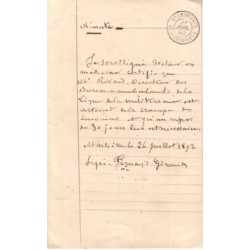 Minute
Je soussigné Docteur en
médecine certifie que
Mr Ricard, Directeur des
Bureaux ambulants de la
Ligne de la Méditerranée est
atteint de la crampe des
écrivains et qu'un repos
de 30 jours lui est nécessaire.
Marseille le 26 juillet 1892
Signé: